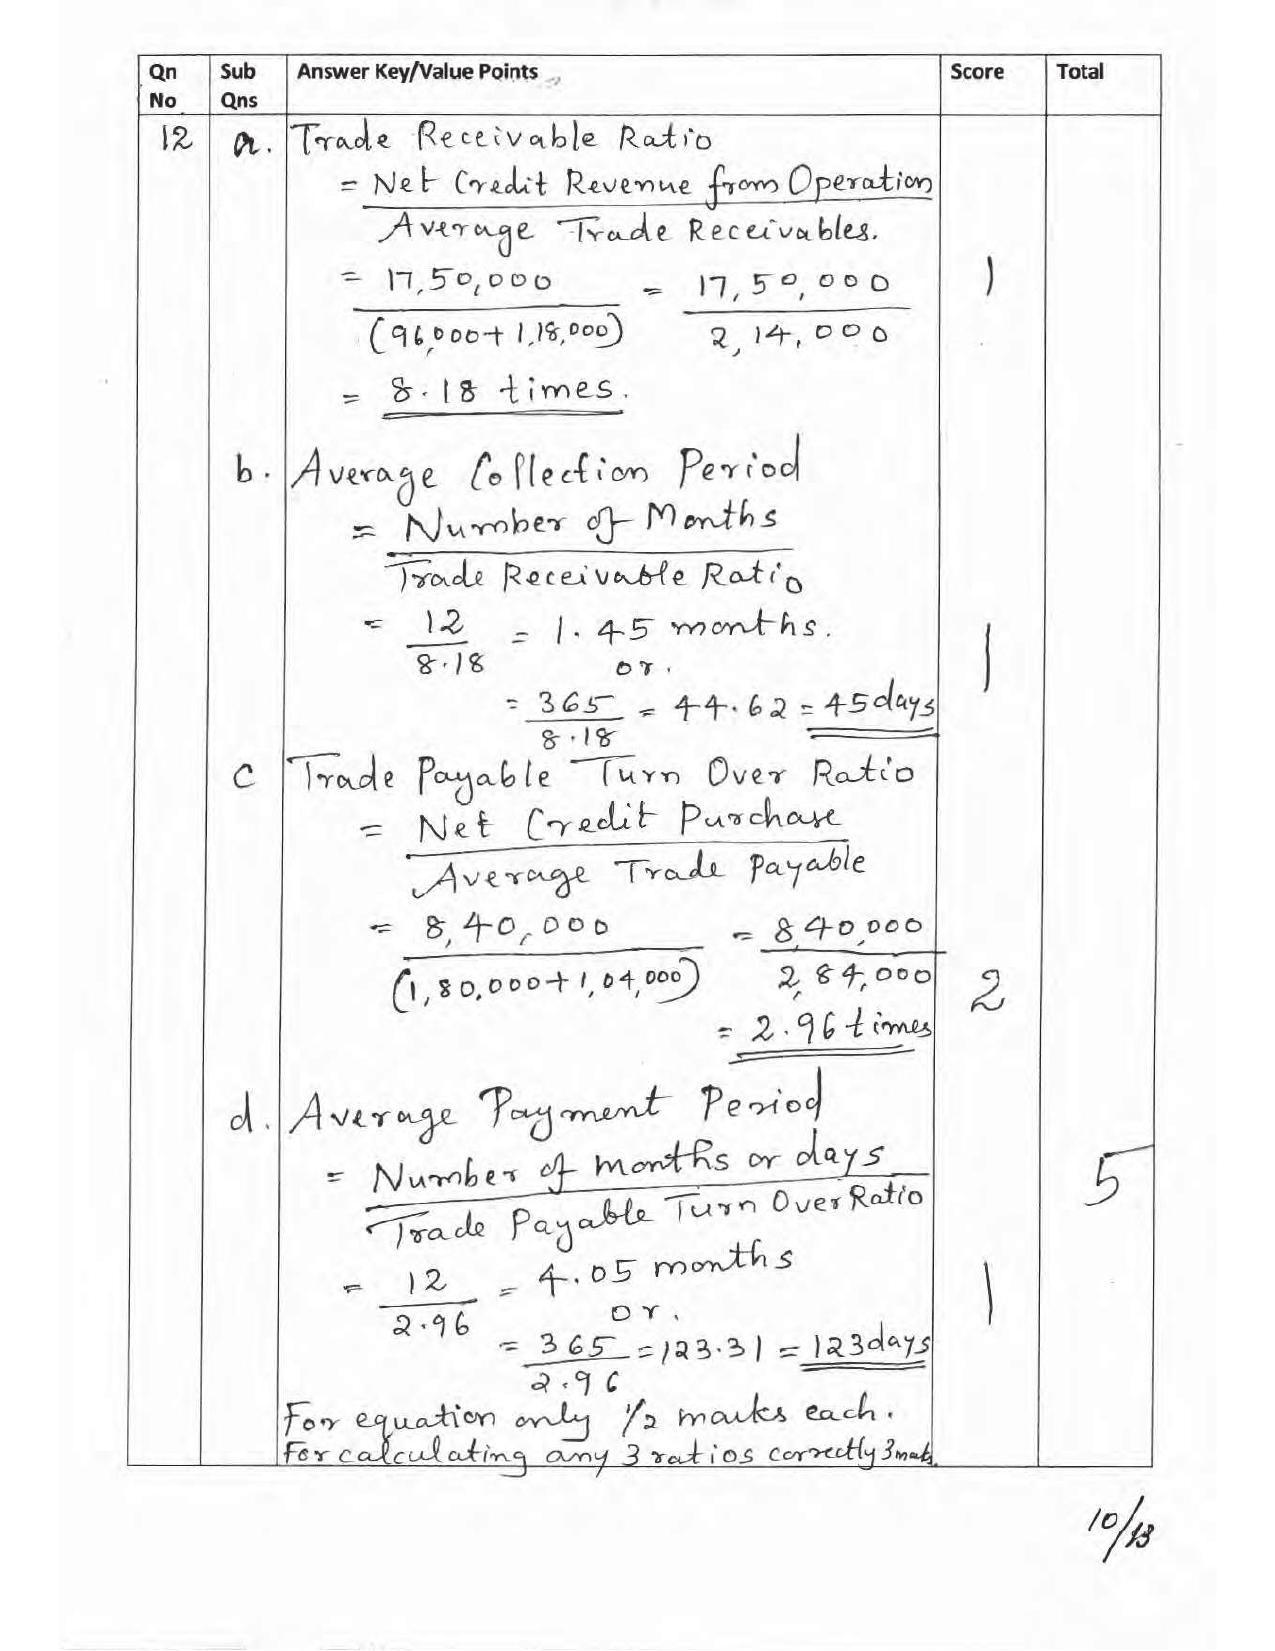 Qn No Sub Qns Answer Key/Value Points Score Total
12 a. Trade Receivable Ratio
= Net Credit Revenue from Operation
Average Trade Receivables.
= 17,50,000 = 17,50,000 1
(96,000+ 1,18,000) 2,14,000
= 8.18 times.
b. Average Collection Period
= Number of Months
Trade Receivable Ratio
= 12 = 1.45 months. 1
8.18 or.
= 365 = 44.62 = 45days
8.18
c Trade Payable Turn Over Ratio
= Net Credit Purchase
Average Trade Payable
= 8,40,000 = 8,40,000
(1,80,000+1,04,000) 2,84,000 2
= 2.96 times
d. Average Payment Period
= Number of months or days 5
Trade Payable Turn Over Ratio
= 12 = 4.05 months 1
2.96 or.
= 365 = 123.31 = 123days
2.96
For equation only 1/2 marks each.
For calculating any 3 ratios correctly 3 marks.
10/13